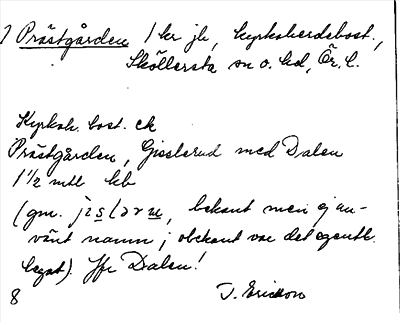 7 Prästgården 1 kr jb, kyrkoherdebost.,
Sköllersta sn o. hd, Ör. l.
Kyrkoh. bost. ek
Prästgården, Gisslerud med Dalen
1 1/2 mtl kb
(gm. , bekant men ej an-
vänt namn; obekant var det egentl.
legat). Jfr Dalen!
8 J. Ericson